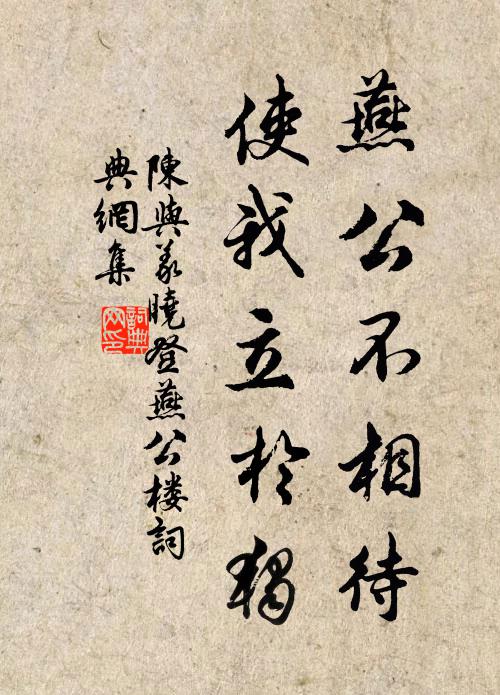 燕公不相待
使我立於獨
陳與義曉登燕公楼詞
典網集
詞典
网印